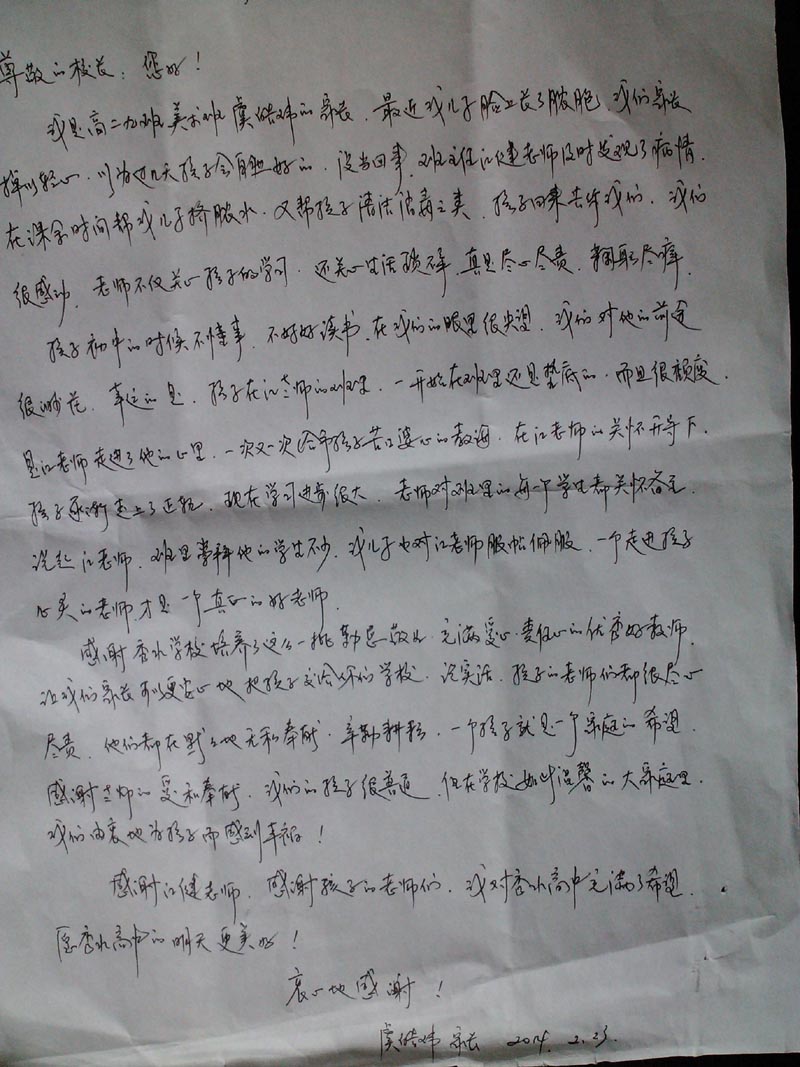 尊敬的校长：您好！
我是高二九班美术班虞皓炜的家长，最近我儿子脸上长了脓胞，我们家长
掉以轻心，以为过几天孩子会自然好的，没当回事，班主任江健老师及时发现了病情，
在课余时间帮我儿子挤脓水，又帮孩子清洁消毒之类，孩子回来告诉我们，我们
很感动，老师不仅关心孩子的学习，还关心生活琐事，真是尽心尽责，鞠躬尽瘁，
孩子初中的时候不懂事，不好好读书，在我们的眼里很失望，我们对他的前途
很渺茫，幸运的是，孩子在江老师的班里，一开始在班里还是垫底的，而且很颓废，
是江老师走进了他的心里，一次又一次给予孩子苦口婆心的教诲，在江老师的关怀开导下，
孩子逐渐走上了正轨，现在学习进步很大，老师对班里的每一个学生都关怀备至，
说起江老师，班里崇拜他的学生不少，我儿子也对江老师服帖佩服，一个走进孩子
心灵的老师，才是一个真正的好老师，
感谢秀水学校培养了这么一批勤恳敬业，充满爱心，责任心的优秀好教师，
让我们家长可以更安心地把孩子交给你们学校，说实话，孩子的老师们都很尽心
尽责，他们都在默默地无私奉献，辛勤耕耘，一个孩子就是一个家庭的希望，
感谢老师的爱和奉献，我们的孩子很普通，但在学校如此温馨的大家庭里，
我们由衷地为孩子而感到幸福！
感谢江健老师，感谢孩子的老师们，我对秀水高中充满了希望，
愿秀水高中的明天更美好！
衷心地感谢！
虞皓炜家长 2014.2.23.